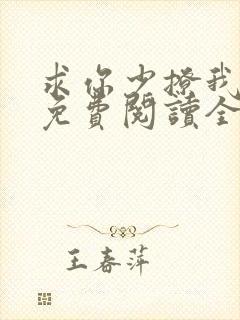 求你少撩我
免費閱讀全
王春萍